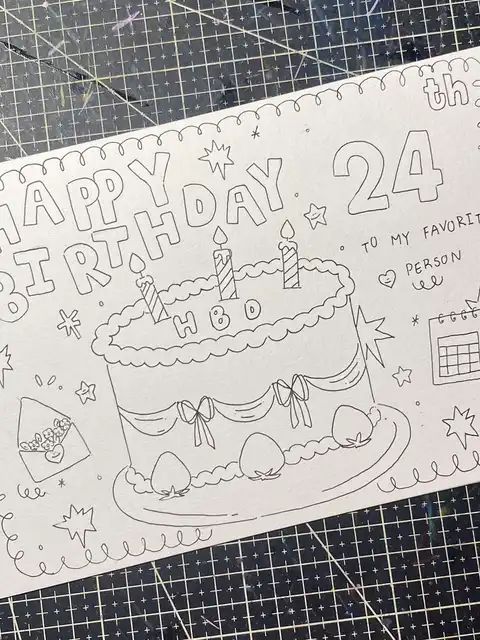 HAPPY
BIRTHDAY
24th
TO MY FAVORIT
PERSON
HBD